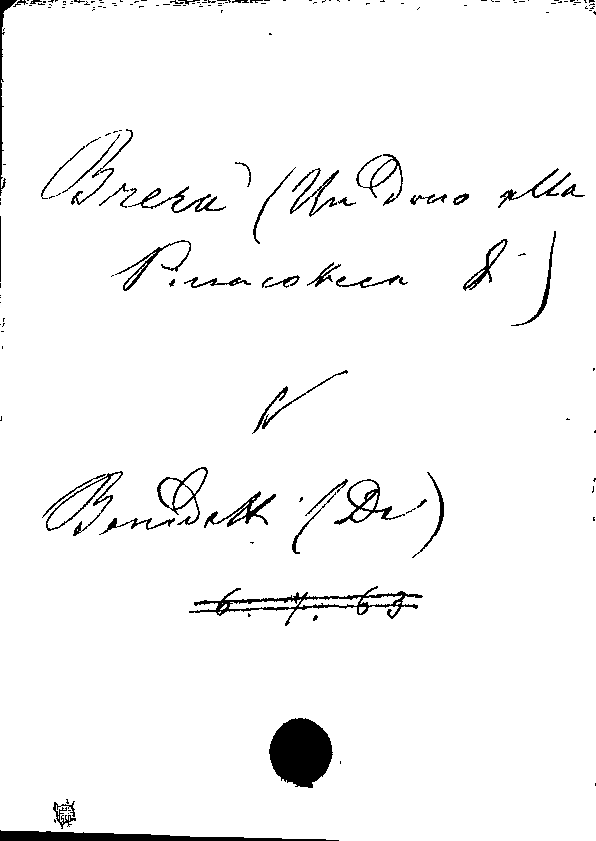 Brera (Un Dono alla
Pinacoteca di)
V
Benedetti (De)
6. 7. 63